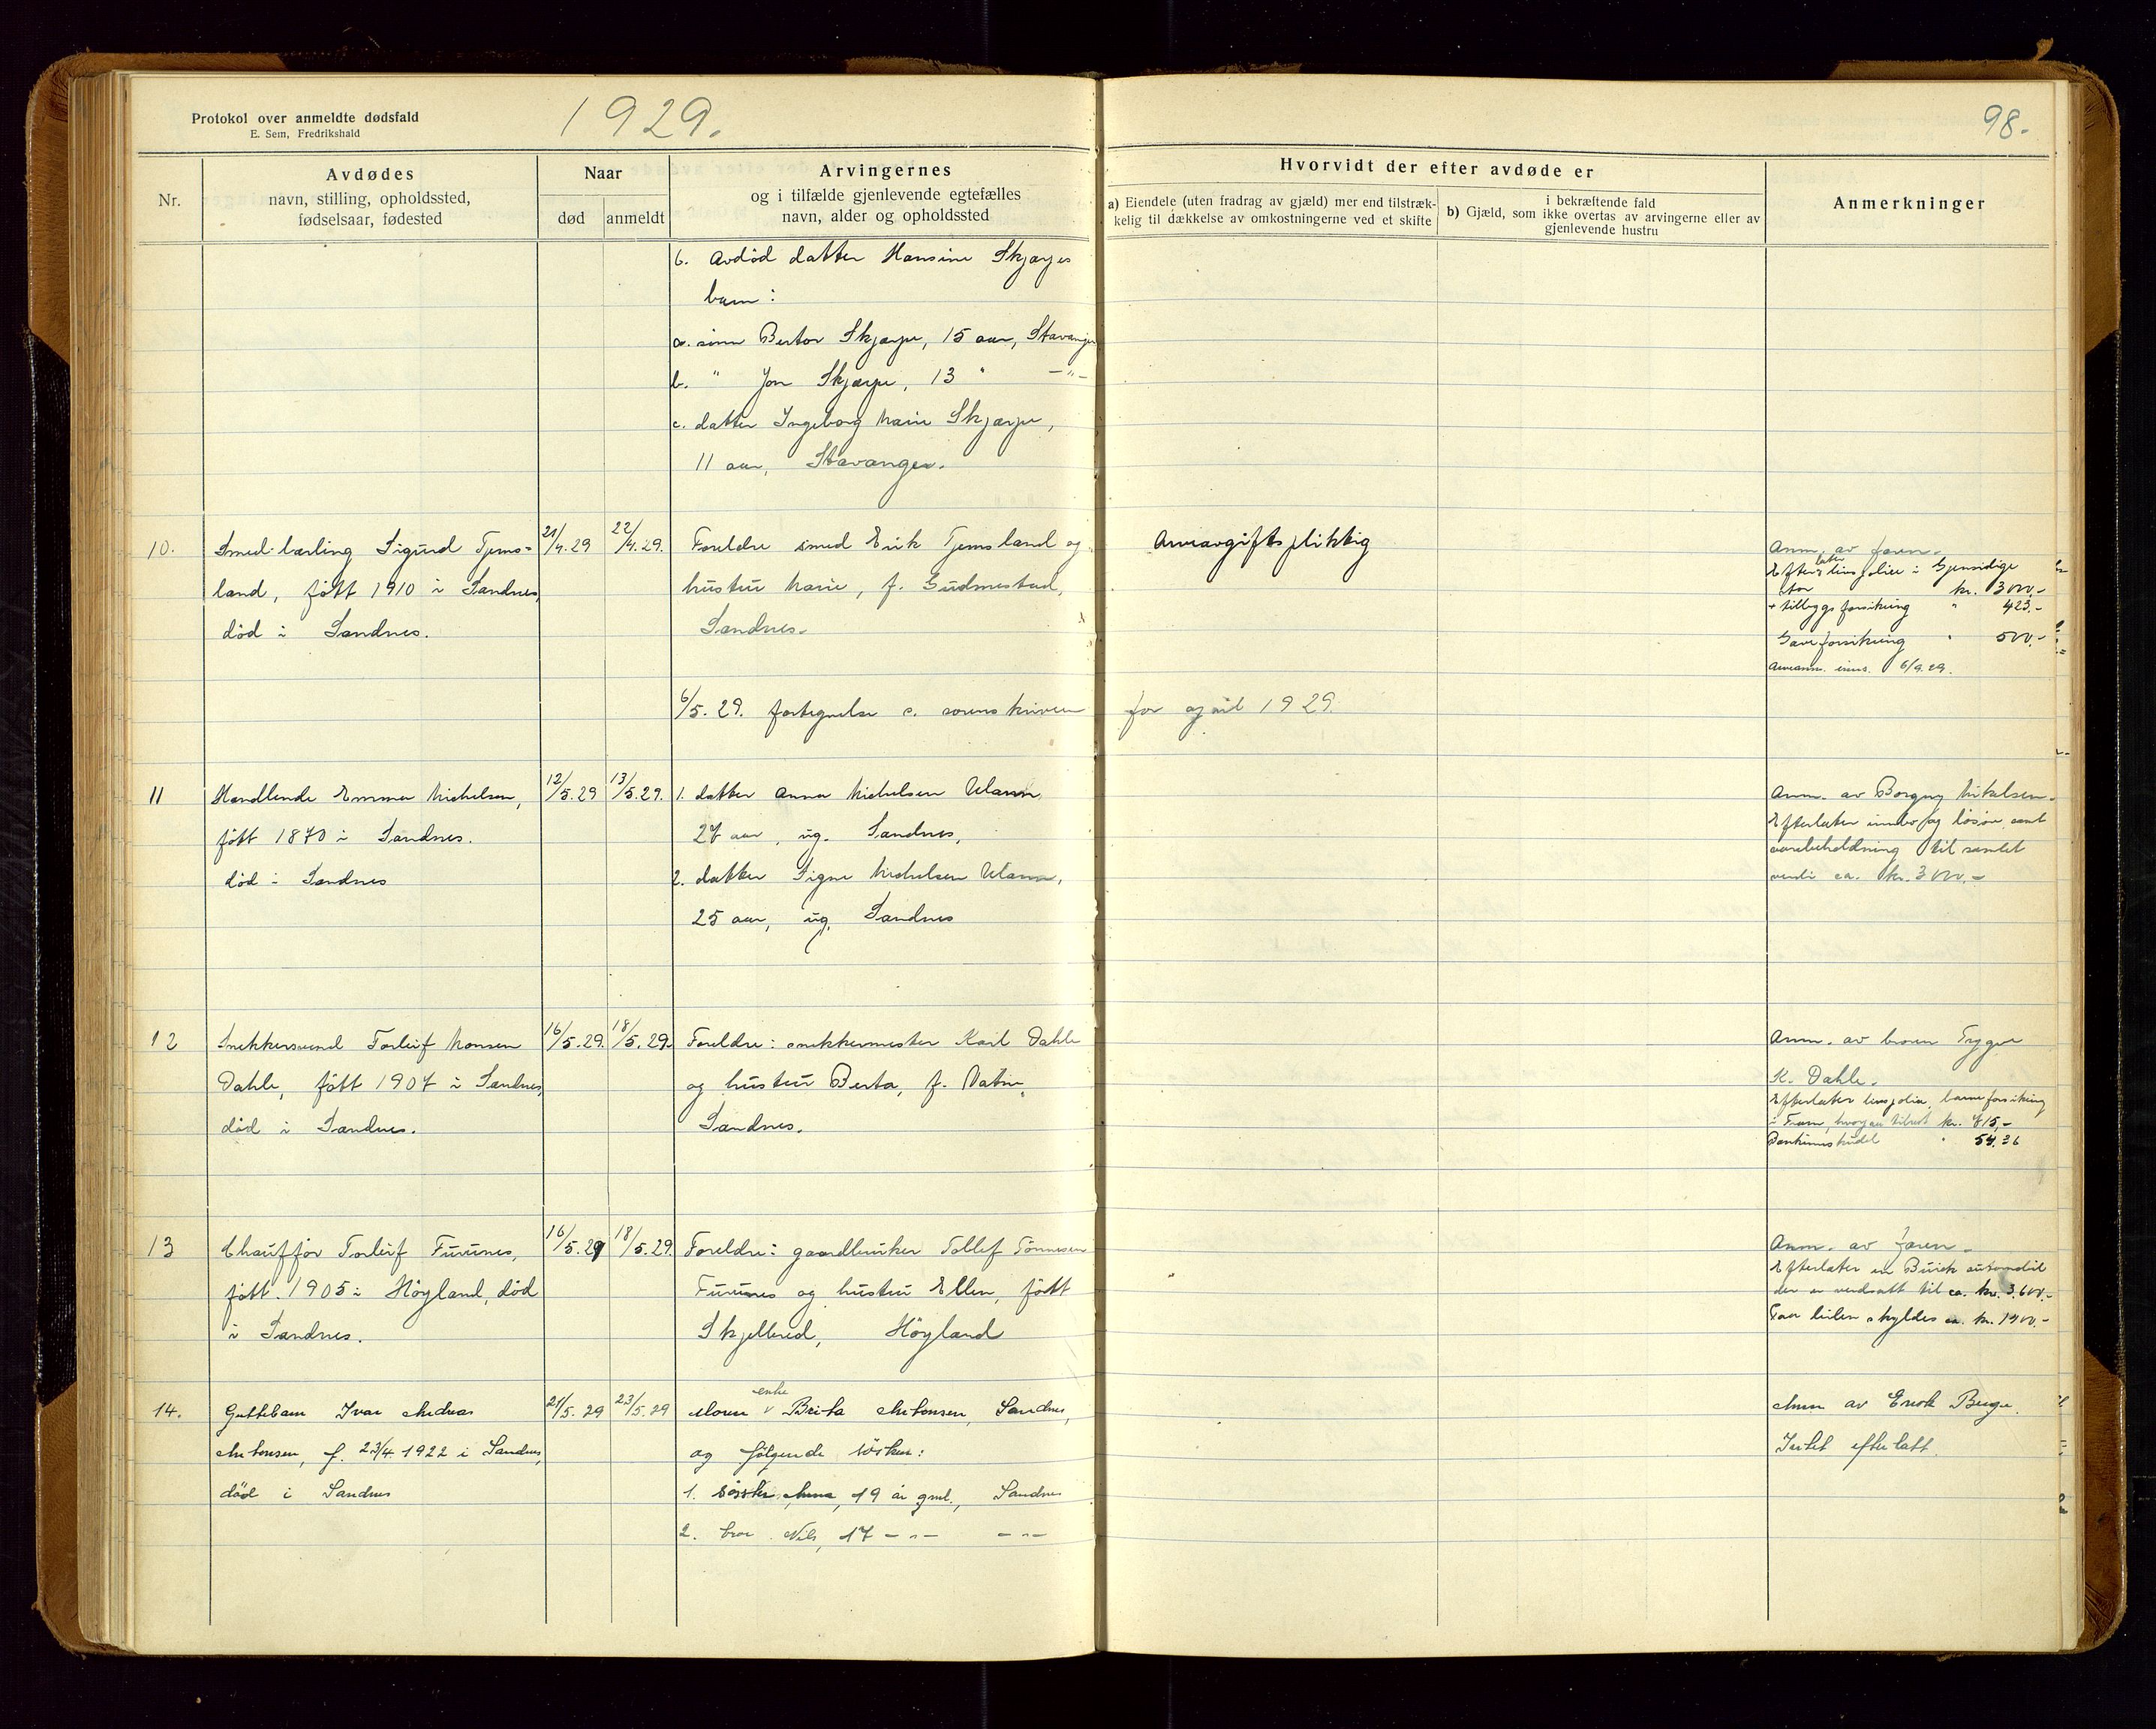 Protokol over anmeldte dødsfald
E. Sem, Fredrikshald
1929.
98.
Nr.
Avdødes
navn, stilling, opholdssted,
fødselsaar, fødested
Naar
død
anmeldt
Arvingernes
og i tilfælde gjenlevende egtefælles
navn, alder og opholdssted
Hvorvidt der efter avdøde er
a) Eiendele (uten fradrag av gjæld) mer end tilstræk-
kelig til dækkelse av omkostningerne ved et skifte
i bekræftende fald
b) Gjæld, som ikke overtas av arvingerne eller av
gjenlevende hustru
Anmerkninger
6. Avdød datter Hansine Skjærpes
barn:
a. sønn Bertor Skjærpe, 15 aar, Stavanger
b. " Jon Skjærpe, 13 " -"-
c. datter Ingeborg Marie Skjærpe,
11 aar, Stavanger.
10.
Smed-lærling Sigurd Tjems-
land, født 1910 i Sandnes,
død i Sandnes.
21/4.29
22/4.29.
Foreldre smed Erik Tjemsland og
hustru Marie, f. Gudmestad,
Sandnes.
Arveavgiftspliktig
Anm. av faren.
Efterlater livspolice i Gjensidige
stor kr. 3000.-
+ tilleggsforsikring " 423.-
Gaveforsikring " 500.-
Arveanm. inns. 6/9.29.
6/5.29. fortegnelse s. sorenskriveren for april 1929.
11
Handlende Emma Michelsen,
født 1870 i Sandnes.
død i Sandnes
12/5.29
13/5.29.
1. datter Anna Michelsen
27 aar, ug. Sandnes,
2. datter Signe Michelsen
25 aar, ug. Sandnes
Anm. av Borgny Mikelsen.
Efterlater innbo og løsøre samt
varebeholdning til samlet
verdi ca. kr. 3000.-
12
Snekkersvend Torleif Monsen
Dahle, født 1907 i Sandnes,
død i Sandnes.
16/5.29.
18/5.29.
Foreldre: snekkermester Karl Dahle
og hustru Berta, f. Vatne,
Sandnes.
Anm. av broren Trygve
K. Dahle.
Efterlater livspolice, barneforsikring
i Fram, kr. 715,-
" 54.36
13
Chauffør Torleif Furunes,
født 1905 i Høyland, død
i Sandnes.
16/5.29
18/5.29.
Foreldre: gaardbruker Tollef Tønnesen
Furunes og hustru Ellen, født
Skjelbred, Høyland
Anm. av faren.
Efterlater en Buick automobil
der er verdsatt til ca. kr. 3.600.-
Paa bilen skyldes ca. kr. 1900.-
14.
Guttebarn Ivar Andreas
Antonsen, f. 23/4 1922 i Sandnes,
død i Sandnes
21/5.29
23/5.29
enke
Moren v Berta Antonsen, Sandnes,
og følgende søsken:
1. søster Anna, 19 år gml., Sandnes
2. bror Nils, 17 -"- -"-
Anm av Enok Berge.
Intet efterlatt.